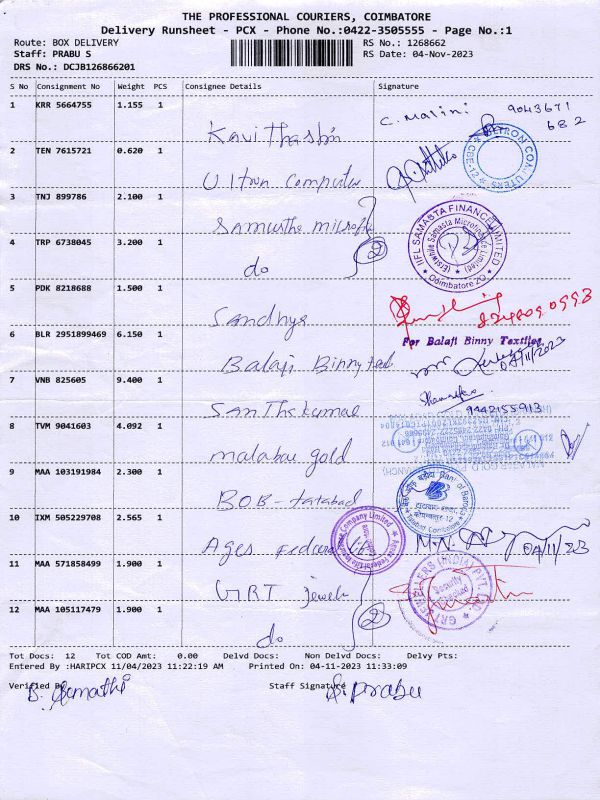 THE PROFESSIONAL COURIERS, COIMBATORE
Delivery Runsheet - PCX - Phone No.:0422-3505555 - Page No.:1
Route: BOX DELIVERY RS No.: 1268662
Staff: PRABU S RS Date: 04-Nov-2023
DRS No.: DCJB126866201
S No Consignment No Weight PCS Consignee Details Signature
1 KRR 5664755 1.155 1 C. Malini 9043671
682
2 TEN 7615721 0.620 1 Ultron Computer
3 TNJ 899786 2.100 1 Samastha
IIFL SAMASTA FINANCE LIMITED
(Erstwhile Samasta Microfinance Limited)
Coimbatore
4 TRP 6738045 3.200 1 do 2
5 PDK 8218688 1.500 1 Sandhya
For Balaji Binny Textiles
6 BLR 2951899469 6.150 1 Balaji Binny 04/11/2023
7 VNB 825605 9.400 1 Santhakumar 9442155913
8 TVM 9041603 4.092 1 malabar gold
9 MAA 103191984 2.300 1 BOB - tatabad
Bank of Baroda
10 IXM 505229708 2.565 1 Ages Federal 04/11/23
11 MAA 571858499 1.900 1 GRT jewel
GRT JEWELLERS (INDIA) PVT LTD
Security Checked
12 MAA 105117479 1.900 1 do 2
Tot Docs: 12 Tot COD Amt: 0.00 Delvd Docs: Non Delvd Docs: Delvy Pts:
Entered By :HARIPCX 11/04/2023 11:22:19 AM Printed On: 04-11-2023 11:33:09
Verified By Staff Signature
S. Prabu